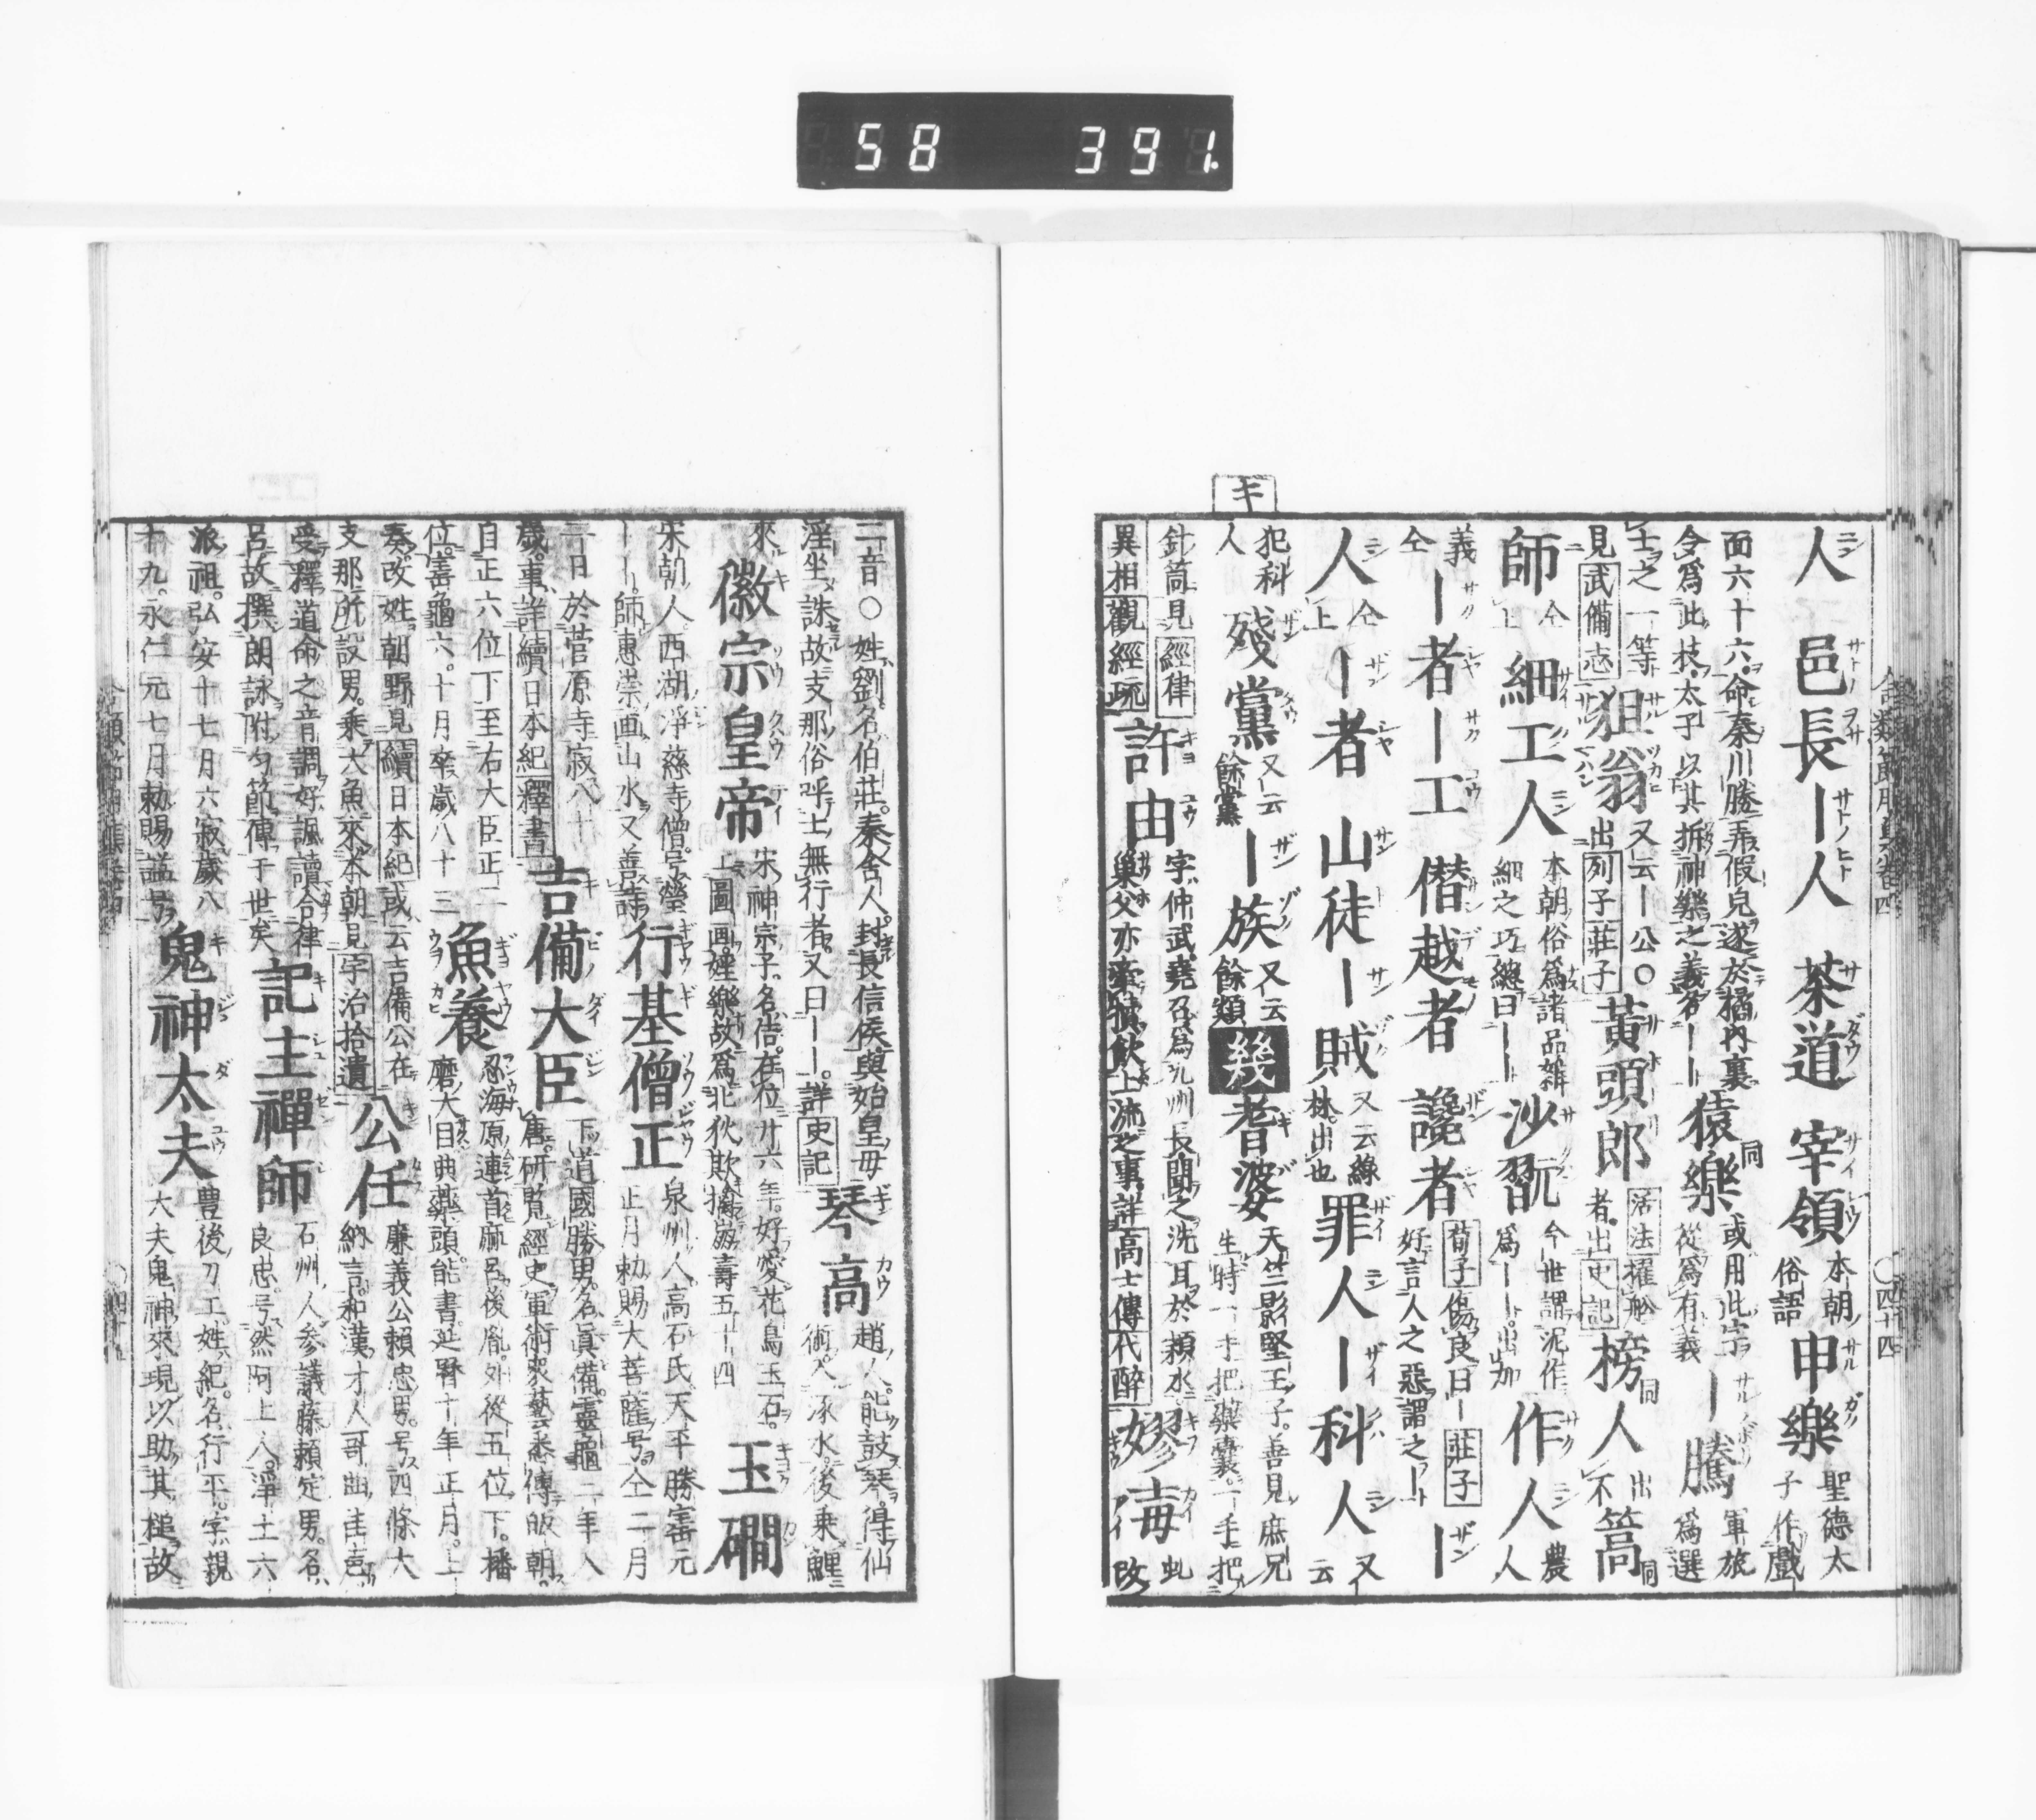 58 391.
人 邑長 ー人 茶道 宰領 本朝俗語 申樂 聖德太子作戲
面六十六命秦川勝弄假皃遂於橘内裏
令爲此技太子以其拆神樂之義名ーー 猿樂 同 或用此字從爲有義 ー騰 軍旅爲選
士之一等見武備志 狙翁 又云ー公〇出列子莊子 黃頭郎 活法擢舩者出史記 榜人 同 出不 篙 同
師 仝上 細工人 本朝俗爲諸品雜細之巧總曰ーー 沙翫 今世謂泥作爲ーー出加 作人 農人
義仝 ー者 ー工 僭越者 讒者 荀子傷良曰ー莊子好言人之惡謂之ー ー
人 仝上 ー者 山徒 ー賊 又云緑林出也 罪人 ー科人 又云
犯科人 殘黨 又云餘黨 ー族 又云餘類 幾 耆婆 天竺影堅王子善見庶兄生時一手把藥囊一手把
キ
針筒見經律異相觀經疏 許由 字仲武堯召爲九州長聞之洗耳於潁水巢父亦牽犢飲上流之事詳高士傳代醉 嫪毐 虬改
二音〇姓劉名伯莊秦舍人封長信侯與始皇母
淫坐誅故支那俗呼士無行者又曰ーー詳史記 琴高 趙人能鼓琴得仙術入涿水後乘鯉
來 徽宗皇帝 宋神宗子名佶在位廿六年好愛花鳥玉石上圖画婬樂故爲北狄欺擒崩壽五十四 玉磵
宋朝人西湖淨慈寺僧号瑩ーー師惠崇画山水又善詩 行基僧正 泉州人高石氏天平勝寳元正月勅賜大菩薩号仝二月
二日於菅原寺寂八十歲事詳續日本紀釋書 吉備大臣 下道國勝男名眞備靈龜二年入唐研覧經史軍術衆藝悉傳皈朝
自正六位下至右大臣正二位寳龜六十月卒歲八十三 魚養 忍海原連首麻呂後胤外從五位下播磨大目典藥頭能書延暦十年正月上
奏改姓朝野見續日本紀或云吉備公在支那所設男乘大魚來本朝見宇治拾遺 公任 廉義公賴忠男号四條大納言和漢才人哥曲
受釋道命之音調好諷讀合律呂故撰朗詠附勾節傳于世矣 記主禪師 石州人參議藤賴定男名良忠号然阿上人淨土六
派祖弘安十七月六寂歲八十九永仁元七月勅賜諡号 鬼神太夫 豊後刀工姓紀名行平字親大夫鬼神來現以助其槌故